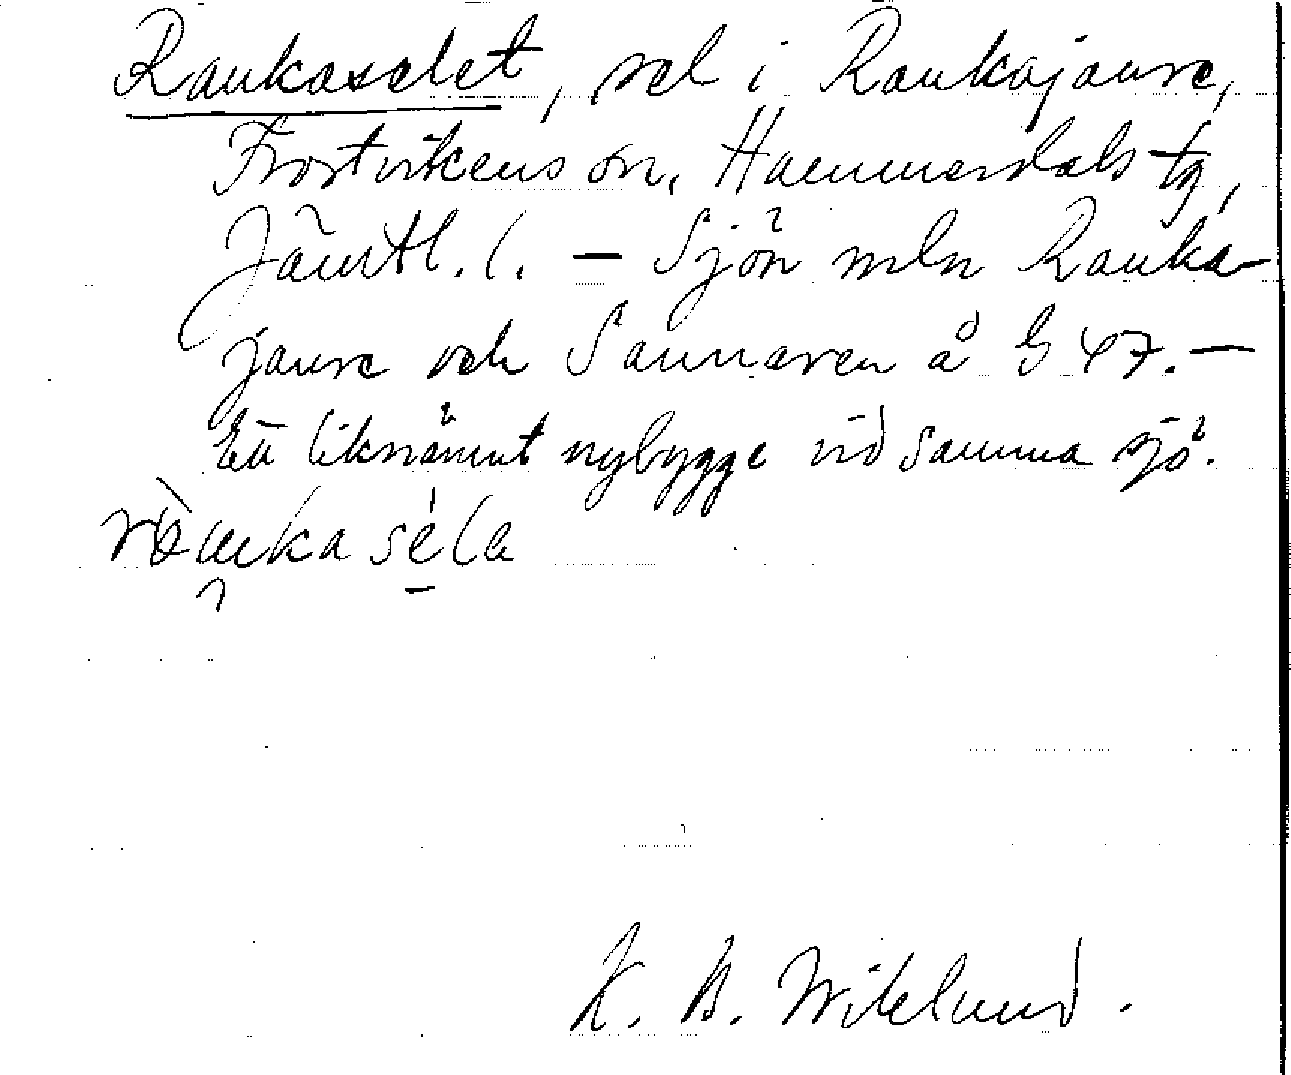 Raukaselet, sel i Raukajaure,
Frostvikens sn, Hammerdals tg,
Jämtl. l. — Sjön mln Rauka-
jaure och Sannaren å G 47. —
Ett liknämnt nybygge vid samma sjö.
K. B. Wiklund.